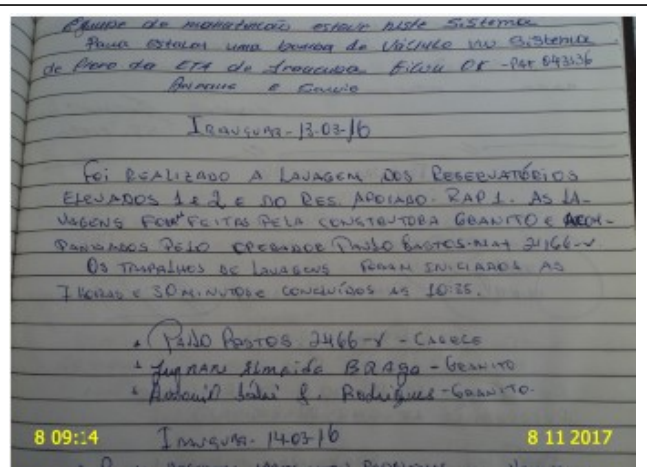 Equipe de manutenção esteve neste Sistema
Para estalar uma bomba de Vácuo no Sistema
de Cloro da ETA de Irauçuba. Ficou OK - Pat 043136
e
Irauçuba - 13-03-16
Foi REALIZADO A LAVAGEM DOS RESERVATÓRIOS
ELEVADOS 1 e 2 E DO RES. APOIADO - RAP 1. AS LA-
VAGENS FORAM FEITAS PELA CONSTRUTORA GRANITO e ACOM-
PANHADOS PELO OPERADOR PAULO BASTOS - MAT 2466-V
OS TRABALHOS DE LAVAGENS FORAM INICIADOS AS
7 HORAS E 30 MINUTOS E CONCLUÍDOS AS 10:25.
PAULO BASTOS 2466-V - CAGECE
Almeida BRAGA - GRANITO
S. Rodrigues - GRANITO.
8 09:14
Irauçuba - 14-03-16
8 11 2017